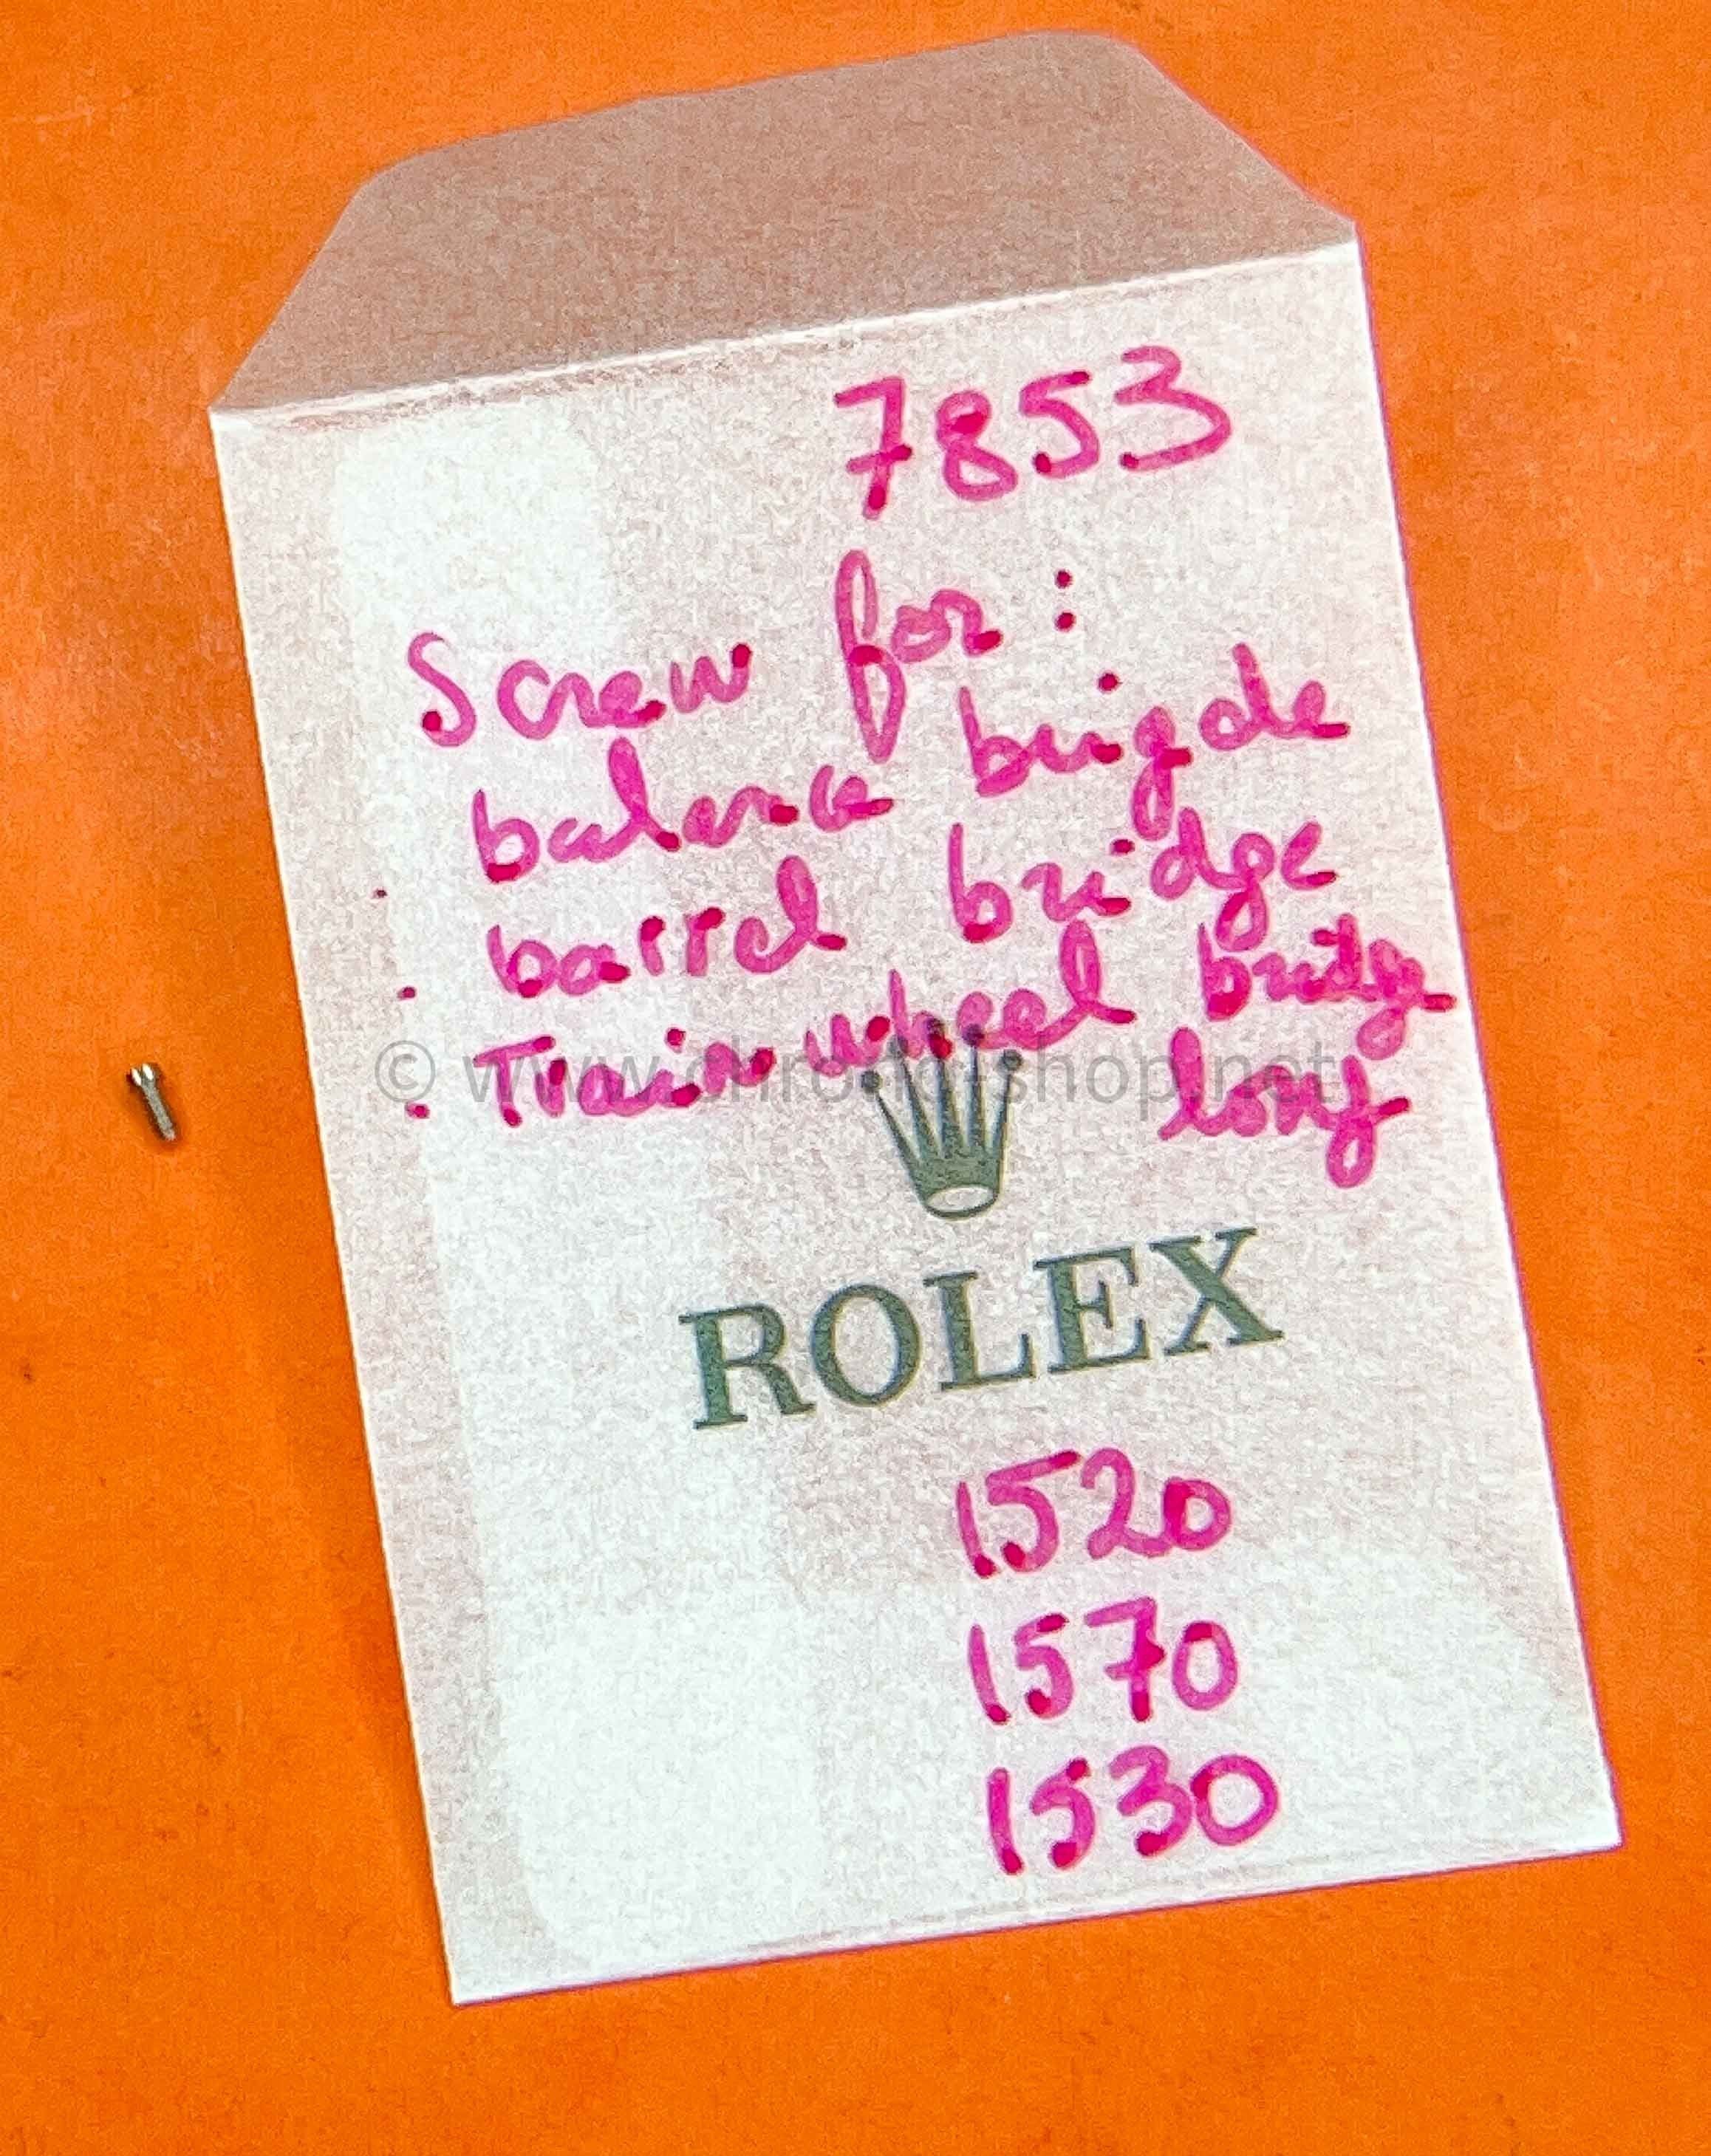 7853
Screw for :
balance brigde
. barrel bridge
. Train wheel bridge
. long
© www.chrono-shop.net
ROLEX
1520
1570
1530